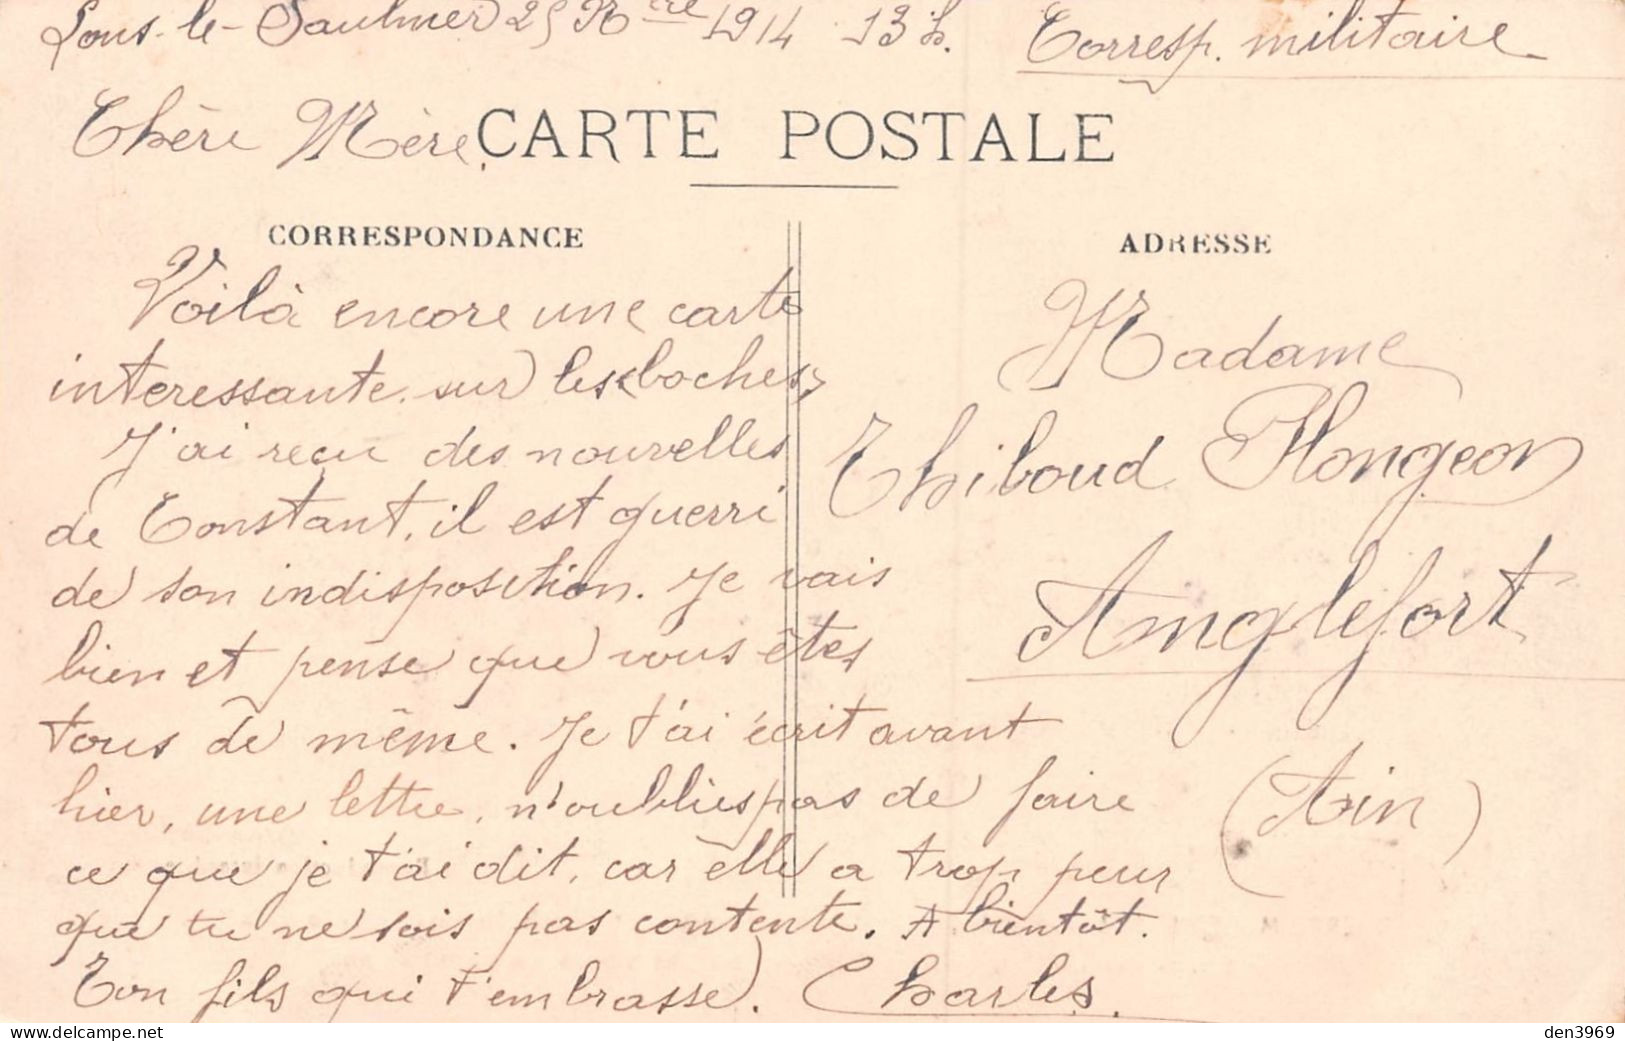 Lons-le-Saulnier 25 Nbre 1914 13 h.
Corresp. militaire
Chère Mère,
CARTE POSTALE
CORRESPONDANCE
Voilà encore une carte
interessante sur les "boches"
J'ai reçu des nouvelles
de Constant, il est guerri
de son indisposition. Je vais
bien et pense que vous êtes
tous de même. Je t'ai écrit avant
hier, une lettre, n'oublies pas de faire
ce que je t'ai dit, car elle a trop peur
que tu ne sois pas contente. A bientôt.
Ton fils qui t'embrasse. Charles.
ADRESSE
Madame
Thiboud Plongeon
Anglefort
(Ain)
den3969